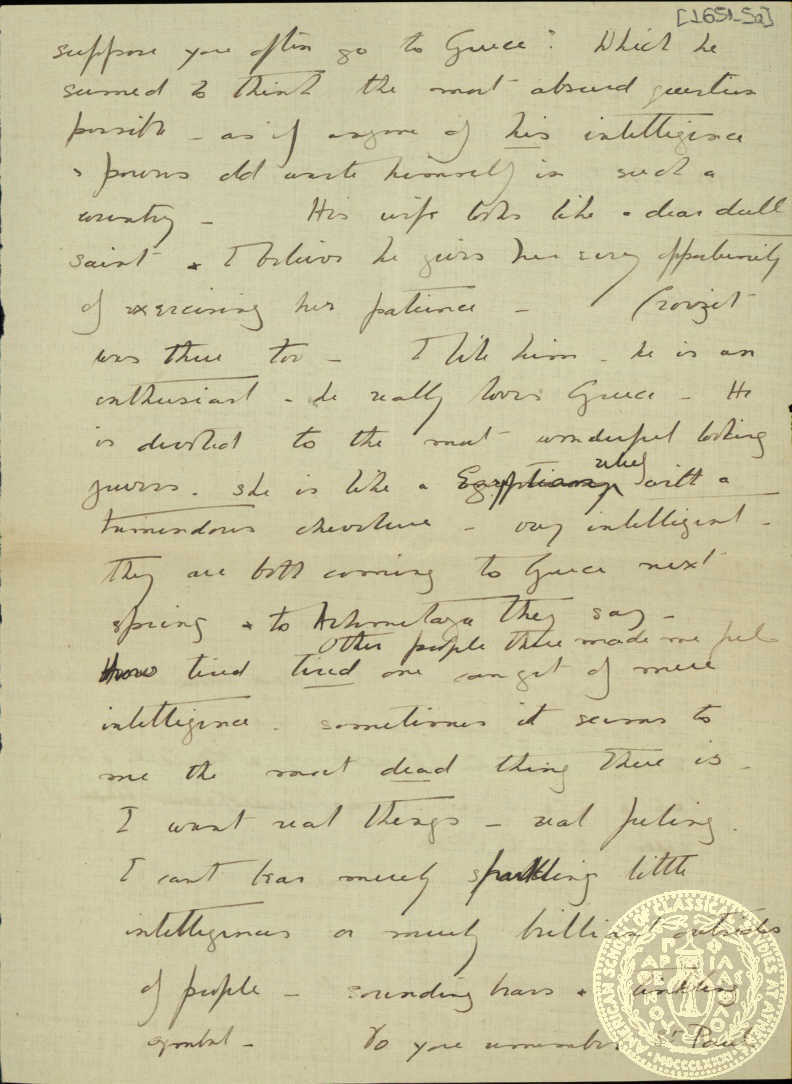 [1651-5a]
suppose you often go to Greece? Which he
seemed to think the most absurd question
possible - as if anyone of his intelligence
& powers cld waste himself in such a
country - His wife looks like a dear dull
saint & I believe he gives her every opportunity
of exercising her patience - Crovzet
was there too - I like him - he is an
enthusiast - he really loves Greece - He
is devoted to the most wonderful looking
she is like a Egyptian with a
tremendous - very intelligent -
they are both coming to Greece next
spring & to they say -
Other people there made me feel
How tired tired one can get of mere
intelligence. sometimes it seems to
me the most dead thing there is -
I want real things - real feeling.
I cant bear merely sparkling little
intelligences or merely brilliant outsides
of people - sounding brass & tinkling
cymbal - Do you remember St Paul
AMERICAN SCHOOL OF CLASSICAL STUDIES AT ATHENS
MDCCCLXXXI